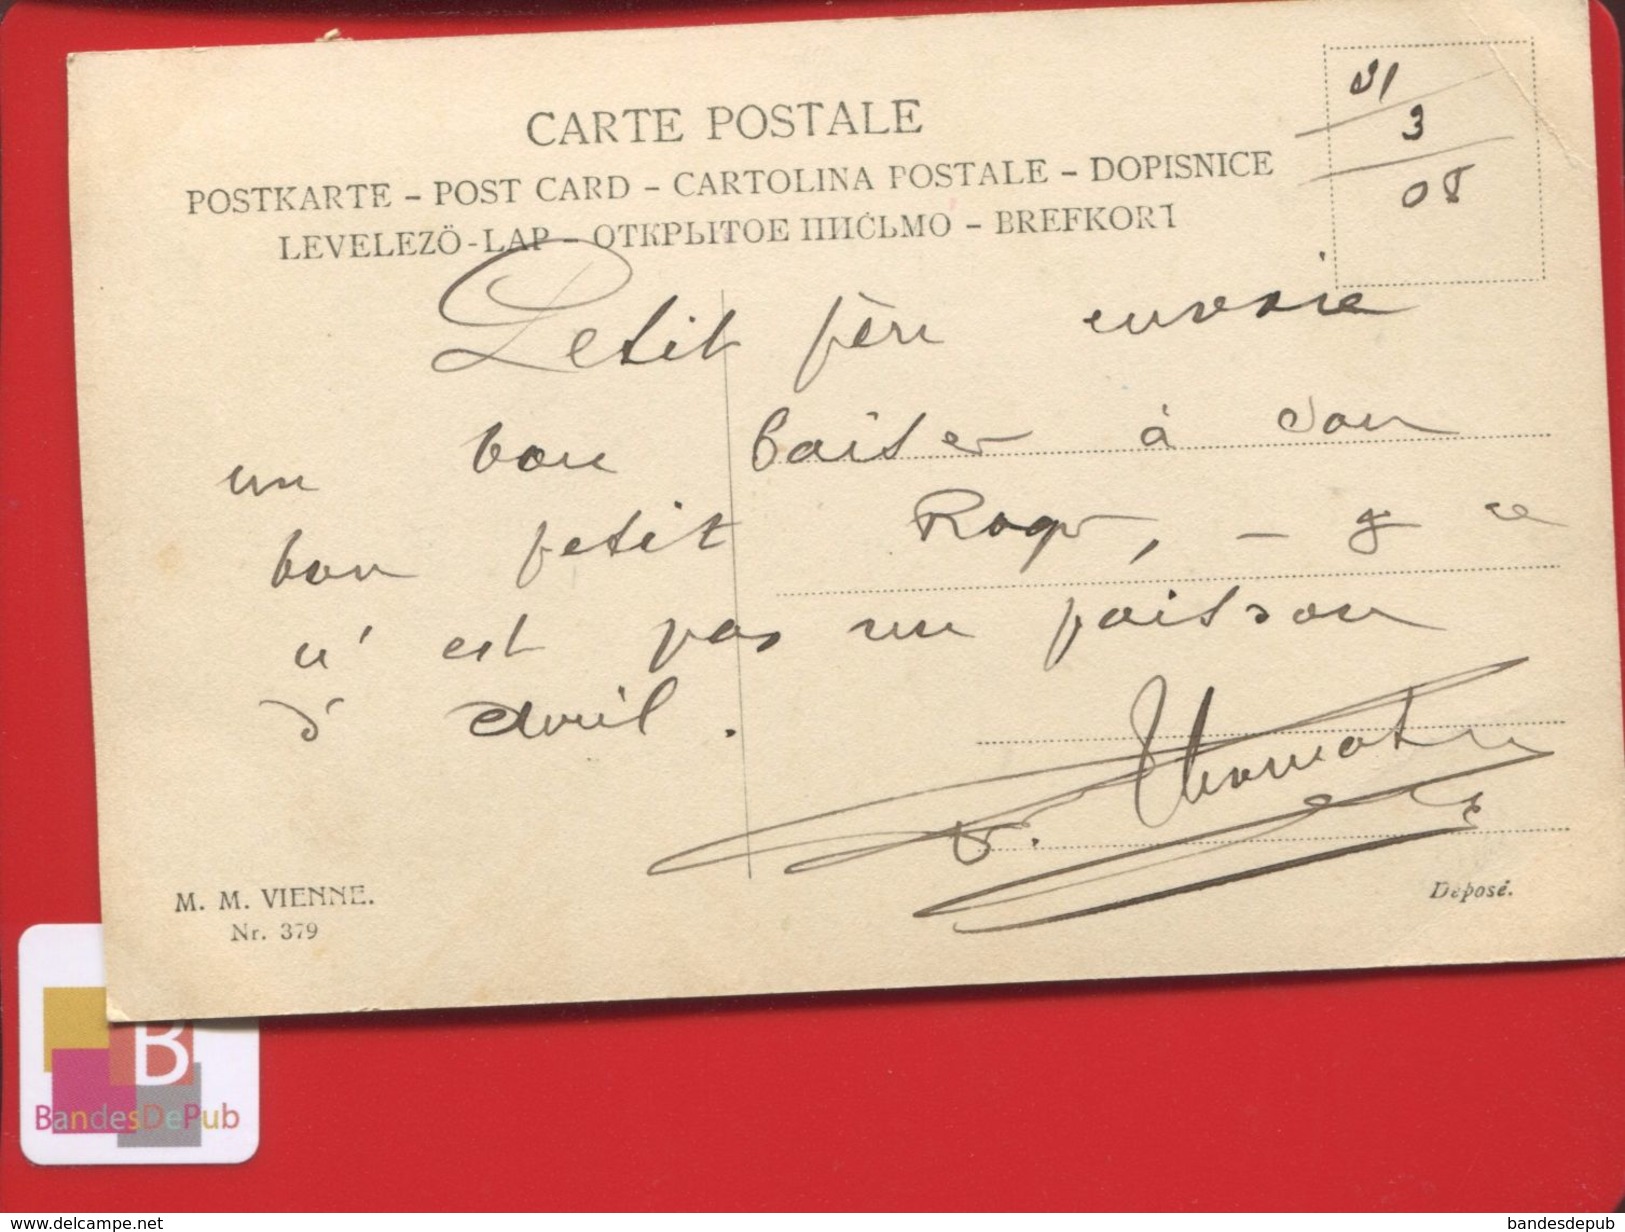 CARTE POSTALE
POSTKARTE – POST CARD – CARTOLINA POSTALE – DOPISNICE
LEVELEZÖ-LAP – ОТКРЫТОЕ ПИСЬМО – BREFKORT
31
3
08
Petit père envoie
un bon baiser à son
bon petit – ce
n'est pas un poisson
d'avril.
M. M. VIENNE.
Nr. 379
Déposé.
B
BandesDePub
www.delcampe.net
bandesdepub